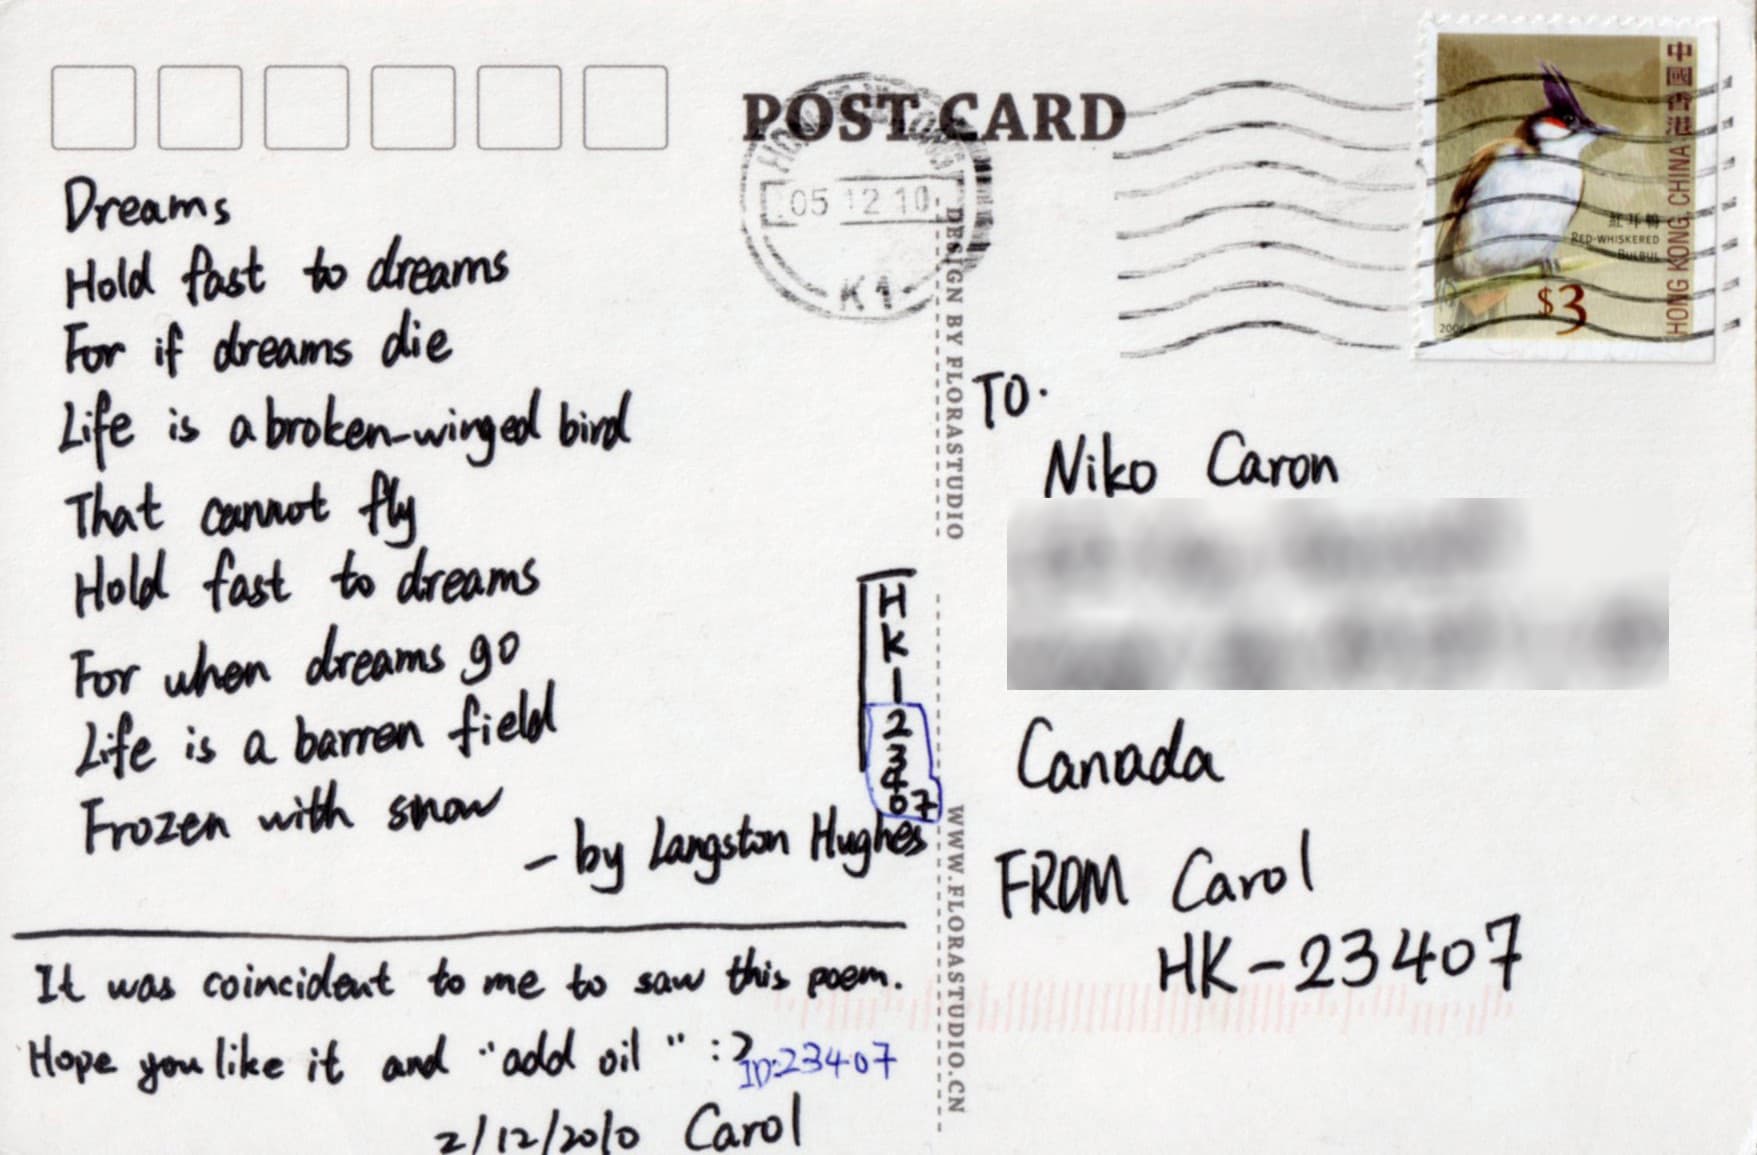 POST CARD
HONG KONG
05 12 10
K1
中國香港
HONG KONG, CHINA
紅耳鵯
RED-WHISKERED
BULBUL
$3
2006
Dreams
Hold fast to dreams
For if dreams die
Life is a broken-winged bird
That cannot fly
Hold fast to dreams
For when dreams go
Life is a barren field
Frozen with snow
- by Langston Hughes
It was coincident to me to saw this poem.
Hope you like it and "add oil" :)
ID:23407
2/12/2010 Carol
HK-23407
DESIGN BY FLORASTUDIO
WWW.FLORASTUDIO.CN
TO.
Niko Caron
Canada
FROM Carol
HK-23407